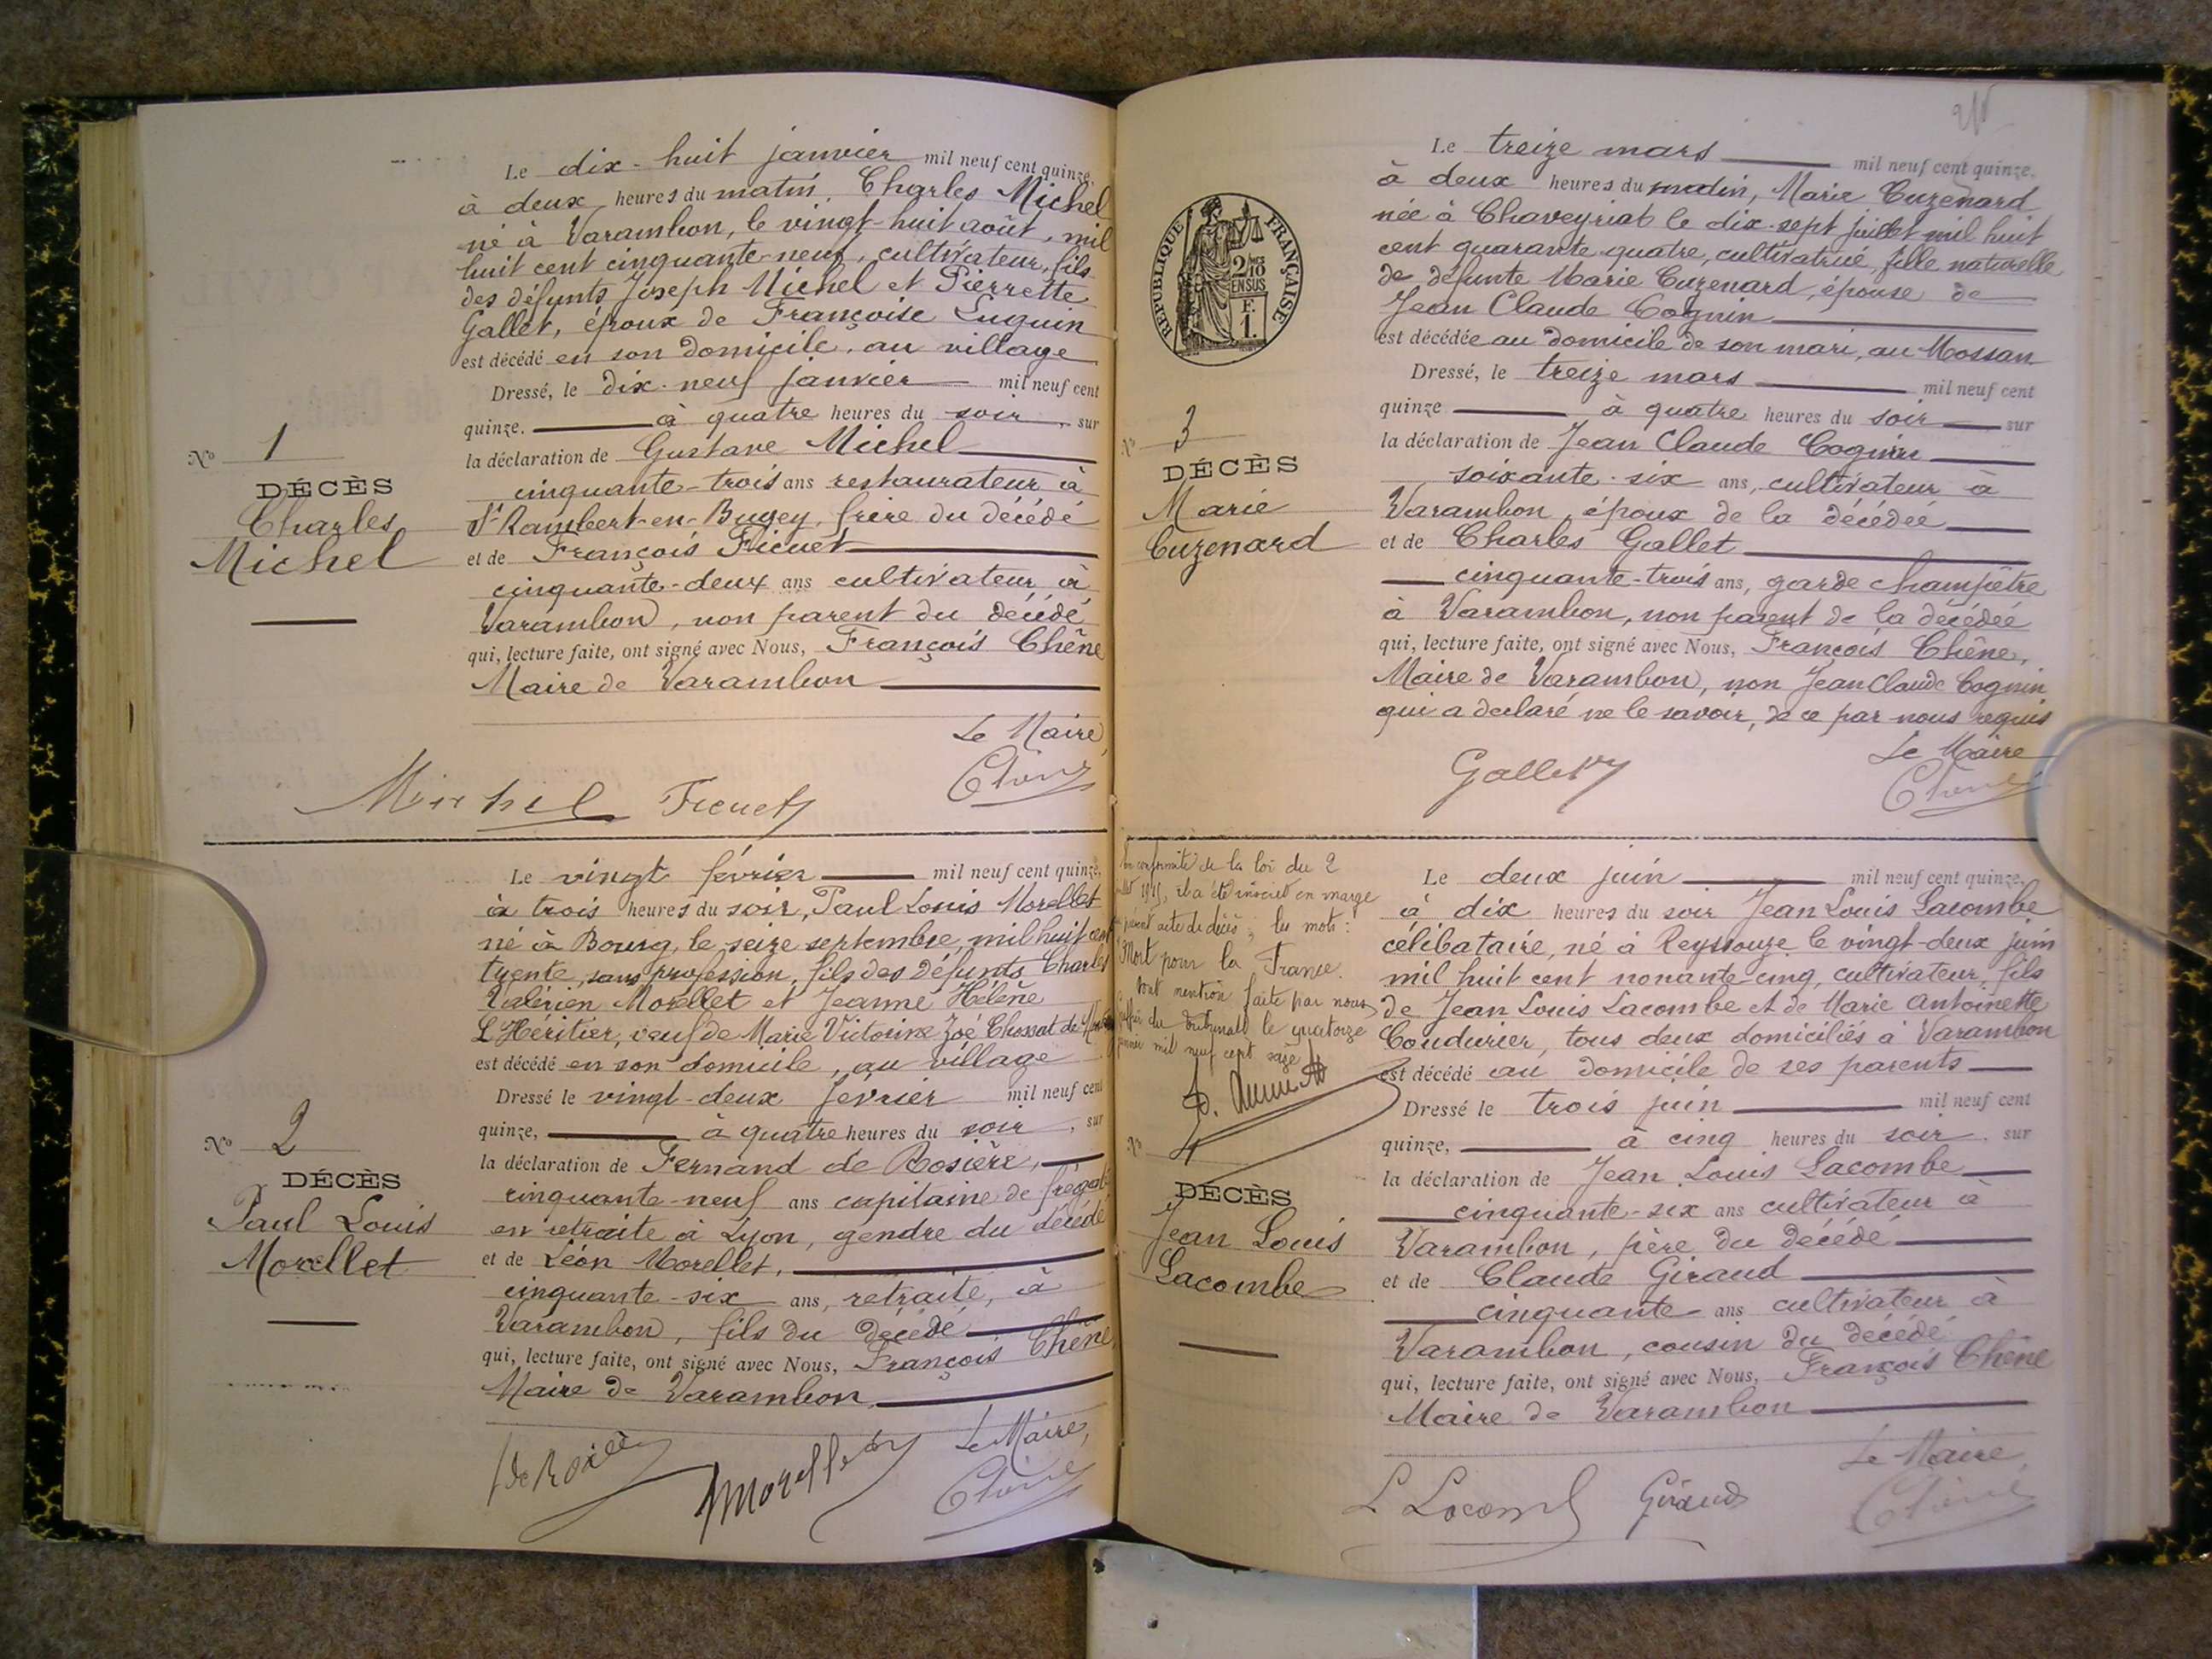 Le dix-huit janvier mil neuf cent quinze,
à deux heures du matin, Charles Michel
né à Varambon, le vingt-huit août, mil
huit cent cinquante-neuf, cultivateur, fils
des défunts Joseph Michel et Pierrette
Gallet, époux de Françoise Luguin
est décédé en son domicile, au village
Dressé, le dix-neuf janvier mil neuf cent
quinze. à quatre heures du soir, sur
la déclaration de Gustave Michel
cinquante-trois ans restaurateur à
St Rambert-en-Bugey, frère du décédé
et de François Ficuet
cinquante-deux ans cultivateur à
Varambon, non parent du décédé
qui, lecture faite, ont signé avec Nous, François Chêne
Maire de Varambon
Le Maire,
Michel Ficuet Chêne
No 1
DÉCÈS
Charles
Michel
Le vingt février mil neuf cent quinze,
à trois heures du soir, Paul Louis Morellet
né à Bourg, le seize septembre, mil huit cent
trente, sans profession, fils des défunts Charles
Valérien Morellet et Jeanne Hélène
L'Héritier, veuf de Marie Victorine Zoé Chossat de
est décédé en son domicile, au village
Dressé le vingt-deux février mil neuf cent
quinze, à quatre heures du soir, sur
la déclaration de Fernand de Rosière,
cinquante-neuf ans capitaine de frégate
en retraite à Lyon, gendre du décédé
et de Léon Morellet,
cinquante-six ans, retraité, à
Varambon, fils du décédé
qui, lecture faite, ont signé avec Nous, François Chêne,
Maire de Varambon
Le Maire,
Morellet Chêne
No 2
DÉCÈS
Paul Louis
Morellet
Le treize mars mil neuf cent quinze,
à deux heures du matin, Marie Cuzenard
née à Chaveyriat le dix-sept juillet mil huit
cent quarante-quatre, cultivatrice, fille naturelle
de défunte Marie Cuzenard, épouse de
Jean Claude Cognin
est décédée au domicile de son mari, au Mossan
Dressé, le treize mars mil neuf cent
quinze à quatre heures du soir sur
la déclaration de Jean Claude Cognin
soixante-six ans, cultivateur à
Varambon, époux de la décédée
et de Charles Gallet
cinquante-trois ans, garde champêtre
à Varambon, non parent de la décédée
qui, lecture faite, ont signé avec Nous, François Chêne,
Maire de Varambon, non Jean Claude Cognin
qui a déclaré ne le savoir, de ce par nous requis
Le Maire
Gallet Chêne
RÉPUBLIQUE FRANÇAISE
2/10
EN SUS
F.
1.
No 3
DÉCÈS
Marie
Cuzenard
En conformité de la loi du 2
juillet 1915, il a été inscrit en marge
présent acte de décès, les mots:
"Mort pour la France.
dont mention faite par nous
greffier du tribunal le quatorze
janvier mil neuf cent seize
Le deux juin mil neuf cent quinze,
à dix heures du soir Jean Louis Lacombe
célibataire, né à Reyssouze le vingt-deux juin
mil huit cent nonante-cinq, cultivateur, fils
de Jean Louis Lacombe et de Marie Antoinette
Coudurier, tous deux domiciliés à Varambon
est décédé au domicile de ses parents
Dressé le trois juin mil neuf cent
quinze, à cinq heures du soir, sur
la déclaration de Jean Louis Lacombe
cinquante-six ans cultivateur à
Varambon, père du décédé
et de Claude Giraud
cinquante ans cultivateur à
Varambon, cousin du décédé
qui, lecture faite, ont signé avec Nous, François Chêne
Maire de Varambon
Le Maire,
L Lacomb Giraud Chêne
No 4
DÉCÈS
Jean Louis
Lacombe